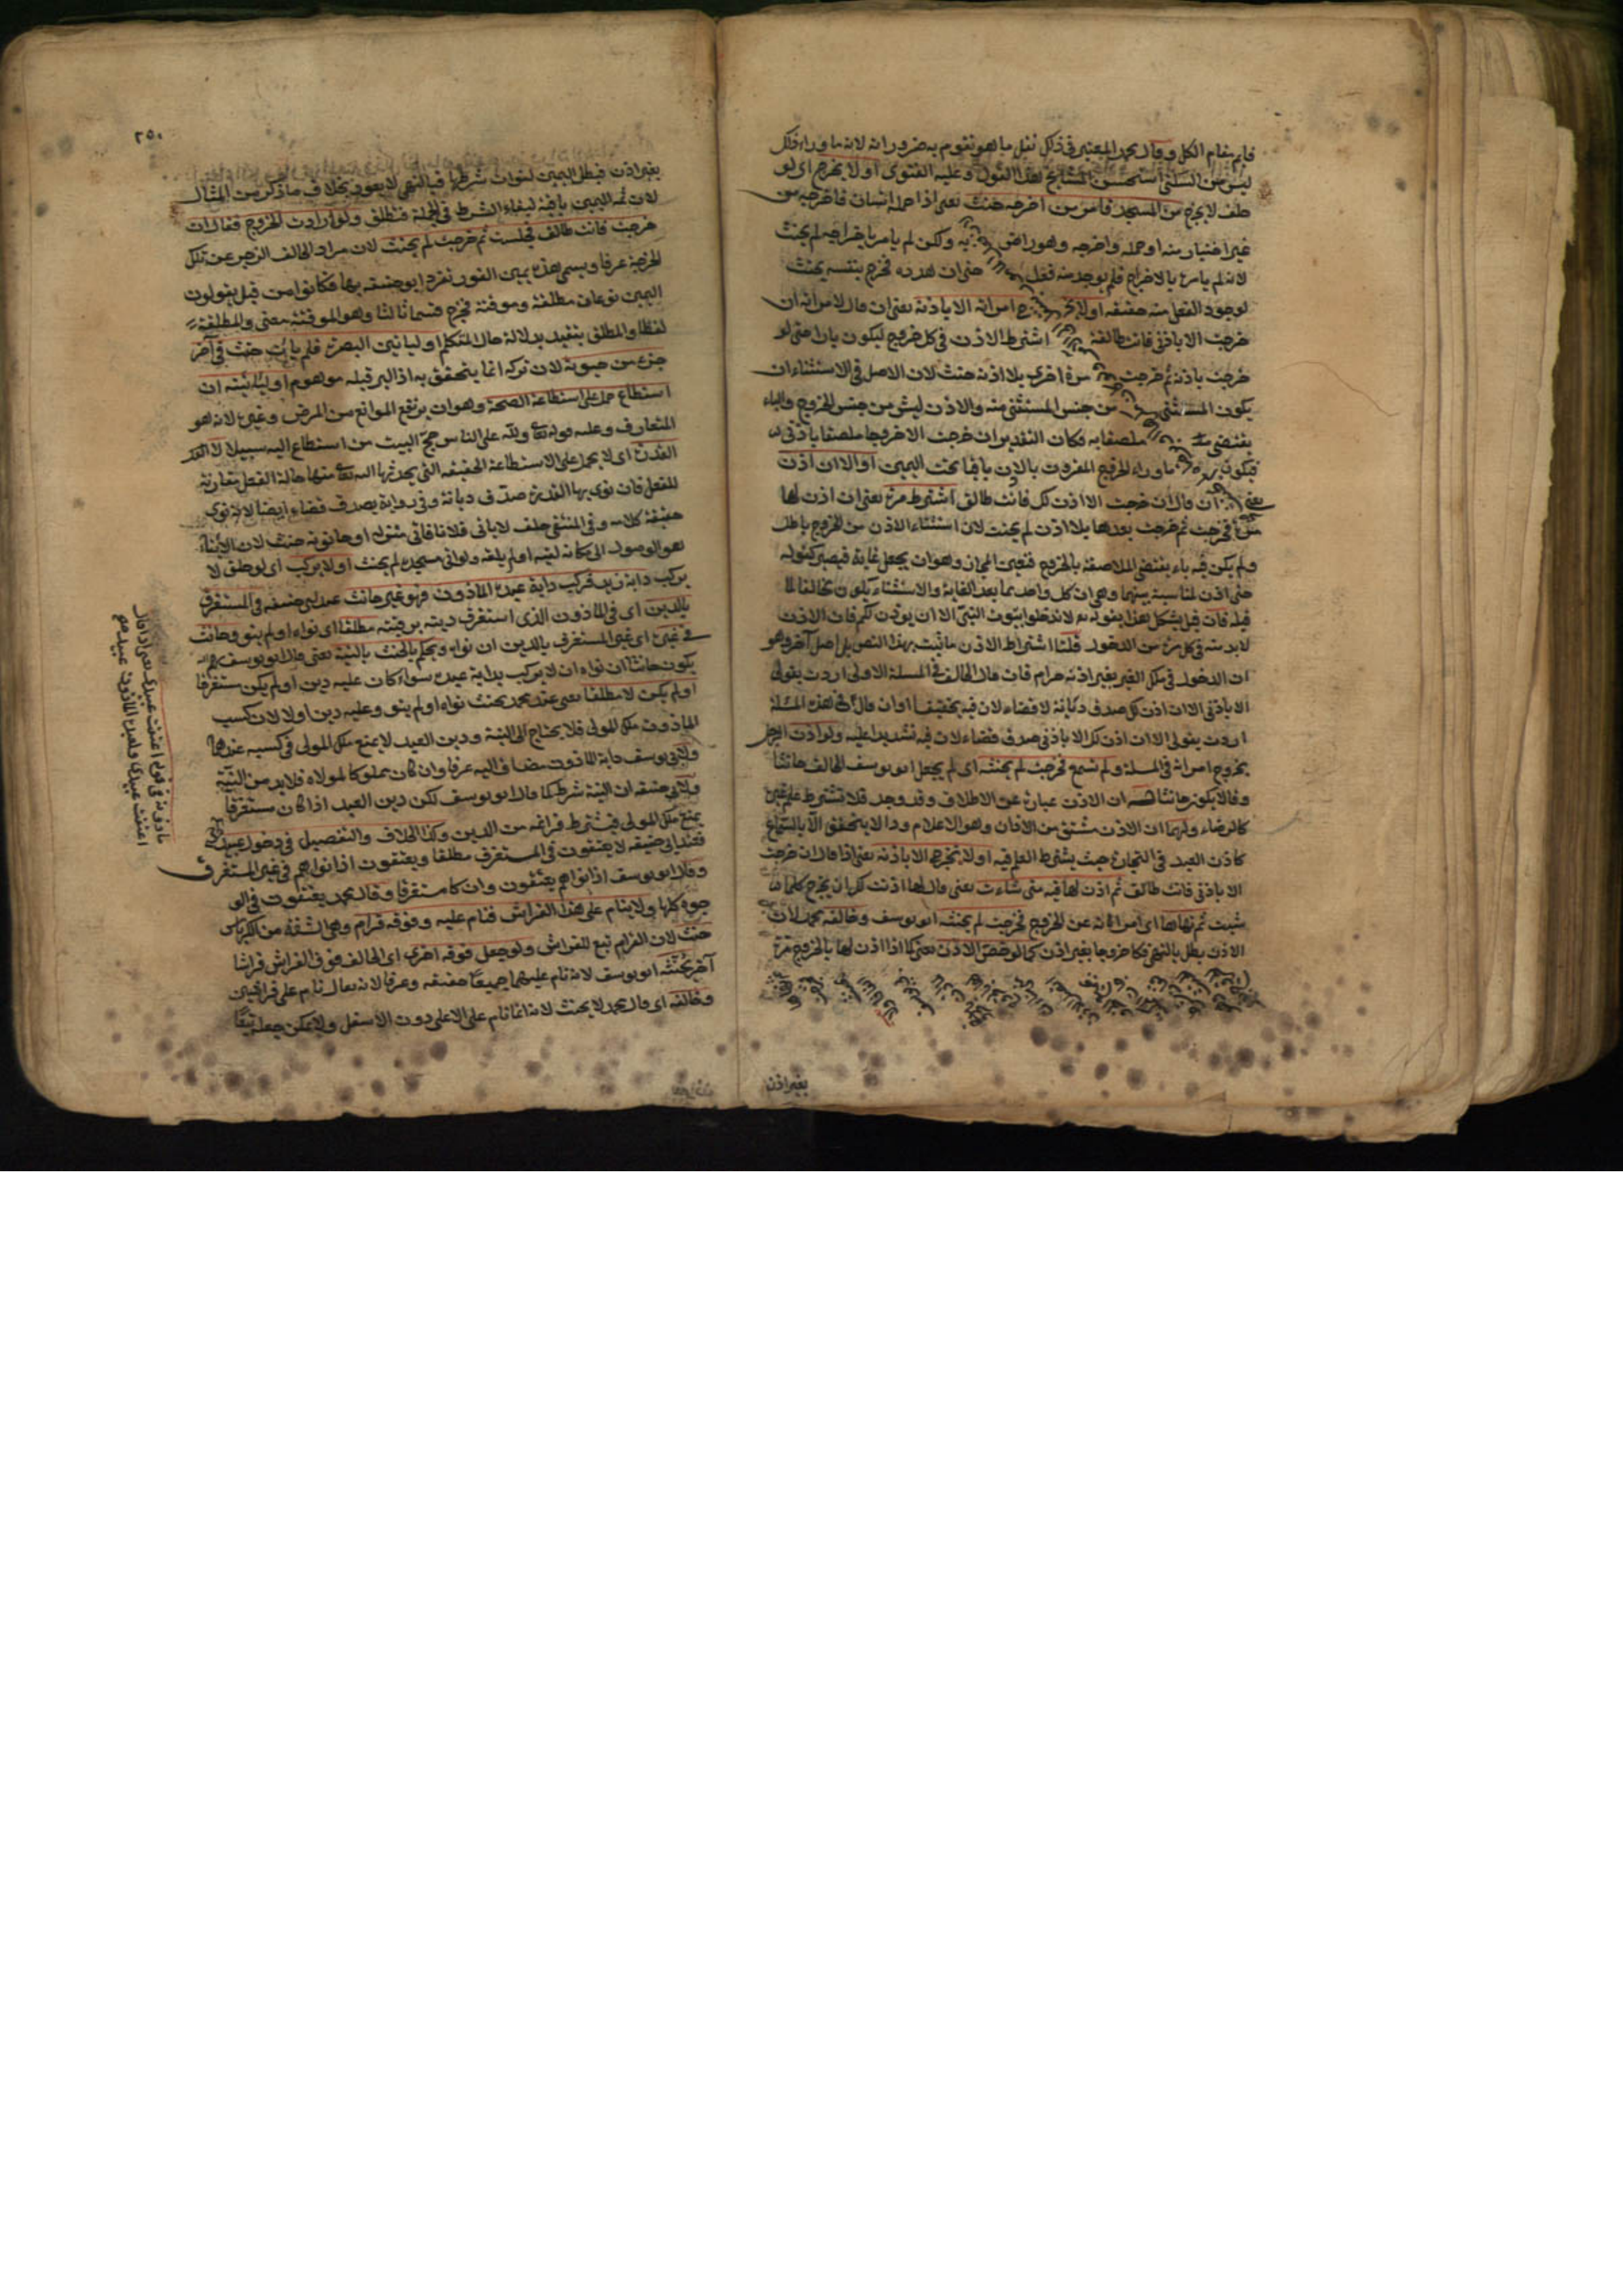 قايم بقام الكل وقال محمد المعتبر في ذلك نقل ما هو تقوم به ضروراته لان ما وراء ذلك
ليس من السكنى استحسن المشايخ هذا القول وعليه الفتوى أو لا يخرج اي لو
حلف لا يخرج من المسجد فامر من اخرجه حنث يعني اذا حمله انسان فاخرجه من
غير اختيار منه او حمله واخرجه وهو راض به ولكن لم يامر باخراجه لم يحنث
لانه لم يامر بالاخراج فلم يوجد منه فعل حتى ان هدده فخرج بنفسه يحنث
لوجود الفعل منه حقيقة أو لا تخرج امراته الا باذنه يعني ان قال لامراته ان
خرجت الا باذني فانت طالق اشترط الاذن في كل خروج ليكون بارا حتى لو
خرجت باذنه ثم خرجت مرة اخرى بلا اذنه حنث لان الاصل في الاستثناء ان
يكون المستثنى من جنس المستثنى منه والاذن ليس من جنس الخروج والباء
يقتضي ملصقا به فكان التقدير ان خرجت الا خروجا ملصقا باذني
فيكون ما وراء الخروج المقرون بالاذن باقيا تحت اليمين أو الا ان اذن
يعني ان قال ان خرجت الا ان اذن لك فانت طالق اشترط مرة يعني ان اذن لها
مرة فخرجت ثم خرجت بعدها بلا اذن لم يحنث لان استثناء الاذن من الخروج باطل
ولم يكن فيه باء يقتضي الملاصقة بالخروج فتعين المجاز وهو ان يجعل غاية فيصير كقوله
حتى اذن لمناسبة بينهما وهي ان كل واحد مما بعد الغاية والاستثناء يكون مخالفا لما
قبله فان قيل يشكل هذا بقوله تع لا تدخلوا بيوت النبي الا ان يؤذن لكم فان الاذن
لا بد منه في كل مرة من الدخول قلنا اشتراط الاذن ما ثبت بهذا النص بل اصل آخر وهو
ان الدخول في ملك الغير بغير اذنه حرام فان قال الحالف في المسئلة الاولى اردت بقولي
الا باذني الا ان اذن لك صدق ديانة لا قضاء لان فيه تخفيفا او ان قال في هذه المسئلة
اردت بقولي الا ان اذن لك الا باذني صدق قضاء لان فيه تشديدا عليه ولو اذن الرجل
بخروج امراته في المسئلة ولم تسمع فخرجت لم يحنثه اي لم يجعل ابو يوسف الحالف حانثا
وقالا يكون حانثا له ان الاذن عبارة عن الاطلاق وقد وجد فلا تشترط علم غيره
كالرضاء ولهما ان الاذن مشتق من الاذان وهو الاعلام وذا لا يتحقق الا بالسماع
كاذن العبد في التجارة حيث يشترط العلم فيه أو لا تخرجي الا باذنه يعني اذا قال ان خرجت
الا باذني فانت طالق ثم اذن لها فيه متى شاءت يعني قال لها اذنت لك ان تخرج كلما
شئت ثم نهاها اي امراته عن الخروج فخرجت لم يحنثه ابو يوسف وخالفه محمد لان
الاذن بطل بالنهي فكا خروجا بغير اذن كما لو خصص الاذن يعني كما اذا اذن لها بالخروج مرة
بغير اذن
٢٥٠
بغير اذن فبطل اليمين لفوات شرطها فبالنهي لا يعود بخلاف ما ذكر من المثال
لان ثمه اليمين باقية لبقاء الشرط في الجملة فتطلق ولو ارادت الخروج فقال ان
خرجت فانت طالق فجلست ثم خرجت لم يحنث لان مراد الحالف الزجر عن تلك
الخرجة عرفا ويسمى هذه يمين الفور تفرد ابو حنيفة بها فكانوا من قبل يقولون
اليمين نوعان مطلقة وموقتة فخرج قسما ثالثا وهو الموقتة معنى والمطلقة
لفظا والمطلق يتقيد بدلالة حال المتكلم او لياتين البصرة فلم يات حنث في آخر
جزء من حيوته لان تركه انما يتحقق به اذ البر قبله موهوم او لياتينه ان
استطاع حمل على استطاعة الصحة وهو ان يرتفع الموانع من المرض وغيره لانه هو
المتعارف وعليه قوله تعالى ولله على الناس حج البيت من استطاع اليه سبيلا لا القدر
القدرة اي لا يحمل على الاستطاعة الحقيقة التي يحدثها الله تعالى منها حالة الفعل مقارنة
للفعل فان نوى بها القدرة صدق ديانة وفي رواية يصدق قضاء ايضا لانه نوى
حقيقة كلامه وفي المنتقى حلف لا ياتي فلانا فاتى منزله او حانوته حنث لان الاتيان
هو الوصول الى مكانه لقيه او لم يلقه ولو اتى مسجده لم يحنث أو لا يركب اي لو حلف لا
يركب دابة زيد فركب دابة عبده الماذون فهو غير حانث عند ابي حنيفة في المستغرق
بالدين اي في الماذون الذي استغرق دينه برقبته مطلقا اي نواه او لم ينو وحانث
في غيره اي غير المستغرق بالدين ان نواه ويحكم بالحنث بالنية يعني قال ابو يوسف
يكون حانثا ان نواه ان لا يركب بدابة عبده سواء كان عليه دين او لم يكن مستغرقا
او لم يكن لا مطلقا يعني عند محمد يحنث نواه او لم ينو وعليه دين اولا لان كسب
الماذون ملك للمولى فلا يحتاج الى النية ودين العبد لا يمنع ملك المولى في كسبه عندهما
ولابي يوسف دابة الماذون مضاف اليه عرفا وان كان مملوكا لمولاه فلا بد من النية
ولابي حنيفة ان النية شرط كما قال ابو يوسف لكن دين العبد اذا كان مستغرقا
يمنع ملك المولى فيشترط فراغه من الدين وكذا الخلاف والتفصيل في دخول عبيد
فعند ابي حنيفة لا يعتقون في المستغرق مطلقا ويعتقون اذا نواهم في غير المستغرق
وقال ابو يوسف اذا نواهم يعتقون وان كا مستغرقا وقال محمد يعتقون في الو
جوه كلها ولا ينام على هذا الفراش فنام عليه وفوقه قرام وهي الشقة من الكرباس
حنث لان القرام تبع للفراش ولو جعل فوقه اخرى اي الحالف فوق الفراش فراشا
آخر يحنثه ابو يوسف لانه نام عليهما جميعا حقيقة وعرفا لانه يقال نام على فراشين
وخالفه اي قال محمد لا يحنث لانه انما نام على الاعلى دون الاسفل ولا يمكن جعله تبعا
ماذونه في قوله اعتقت عبيدي يعني اذا قال
اعتقت عبيدي ولعبده الماذون عبيد